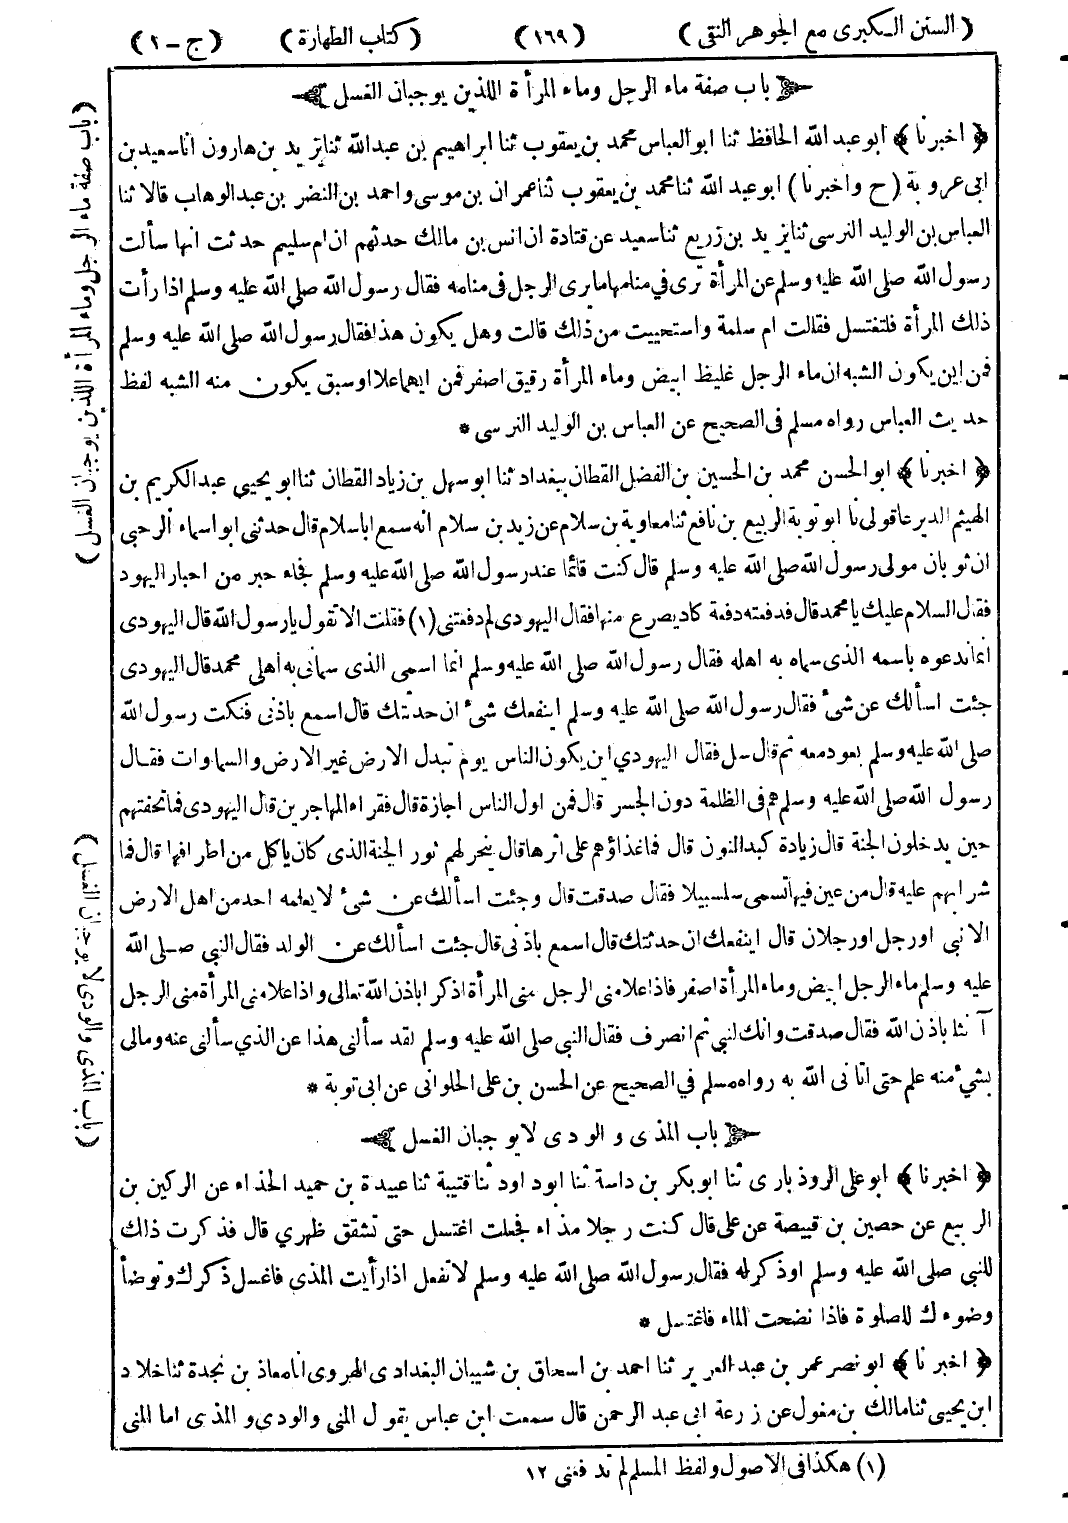 (السنن الكبرى مع الجوهر النقى) (١٦٩) (كتاب الطهارة) (ج-١)
باب صفة ماء الرجل وماء المرأة اللذين يوجبان الغسل
﴿اخبرنا﴾ ابو عبد الله الحافظ ثنا ابو العباس محمد بن يعقوب ثنا ابراهيم بن عبد الله ثنا يزيد بن هارون انا سعيد بن
ابى عروبة (ح واخبرنا) ابو عبد الله ثنا محمد بن يعقوب ثنا عمران بن موسى واحمد بن النضر بن عبد الوهاب قالا ثنا
العباس بن الوليد النرسى ثنا يزيد بن زريع ثنا سعيد عن قتادة ان انس بن مالك حدثهم ان ام سليم حدثت انها سألت
رسول الله صلى الله عليه وسلم عن المرأة ترى في منامها ما يرى الرجل في منامه فقال رسول الله صلى الله عليه وسلم اذا رأت
ذلك المرأة فلتغتسل فقالت ام سلمة واستحييت من ذلك قالت وهل يكون هذا فقال رسول الله صلى الله عليه وسلم
فمن اين يكون الشبه ان ماء الرجل غليظ ابيض وماء المرأة رقيق اصفر فمن ايهما علا او سبق يكون منه الشبه لفظ
حديث العباس رواه مسلم فى الصحيح عن العباس بن الوليد النرسى *
﴿اخبرنا﴾ ابو الحسن محمد بن الحسين بن الفضل القطان ببغداد ثنا ابو سهل بن زياد القطان ثنا ابو يحيى عبد الكريم بن
الهيثم الديرعاقولى نا ابو توبة الربيع بن نافع ثنا معاوية بن سلام عن زيد بن سلام انه سمع ابا سلام قال حدثنى ابو اسماء الرحبى
ان ثوبان مولى رسول الله صلى الله عليه وسلم قال كنت قائما عند رسول الله صلى الله عليه وسلم فجاء حبر من احبار اليهود
فقال السلام عليك يا محمد قال فدفعته دفعة كاد يصرع منها فقال اليهودى لم دفعتنى (١) فقلت الا تقول يا رسول الله قال اليهودى
انما ندعوه باسمه الذى سماه به اهله فقال رسول الله صلى الله عليه وسلم انما اسمى الذى سمانى به اهلى محمد قال اليهودى
جئت اسألك عن شئ فقال رسول الله صلى الله عليه وسلم اينفعك شئ ان حدثتك قال اسمع باذنى فنكت رسول الله
صلى الله عليه وسلم بعود معه ثم قال سل فقال اليهودي اين يكون الناس يوم تبدل الارض غير الارض والسماوات فقال
رسول الله صلى الله عليه وسلم هم فى الظلمة دون الجسر قال فمن اول الناس اجازة قال فقراء المهاجرين قال اليهودى فما تحفتهم
حين يدخلون الجنة قال زيادة كبد النون قال فما غذاؤهم على اثرها قال ينحر لهم ثور الجنة الذى كان يا كل من اطرافها قال فما
شرابهم عليه قال من عين فيها تسمى سلسبيلا فقال صدقت قال وجئت اسألك عن شئ لا يعلمه احد من اهل الارض
الا نبى او رجل او رجلان قال اينفعك ان حدثتك قال اسمع باذنى قال جئت اسألك عن الولد فقال النبى صلى الله
عليه وسلم ماء الرجل ابيض وماء المرأة اصفر فاذا علا منى الرجل منى المرأة اذكرا باذن الله تعالى واذا علا منى المرأة منى الرجل
آنثا باذن الله فقال صدقت وانك لنبى ثم انصرف فقال النبى صلى الله عليه وسلم لقد سألنى هذا عن الذي سألنى عنه ومالى
بشيء منه علم حتى اتانى الله به رواه مسلم في الصحيح عن الحسن بن على الحلوانى عن ابى توبة *
باب المذى والودى لا يوجبان الغسل
﴿اخبرنا﴾ ابو على الروذبارى ثنا ابو بكر بن داسة ثنا ابو داود ثنا قتيبة ثنا عبيدة بن حميد الحذاء عن الركين بن
الربيع عن حصين بن قبيصة عن على قال كنت رجلا مذاء فجعلت اغتسل حتى تشقق ظهري قال فذكرت ذلك
للنبي صلى الله عليه وسلم او ذكر له فقال رسول الله صلى الله عليه وسلم لا تفعل اذا رأيت المذى فاغسل ذكرك وتوضأ
وضوءك للصلوة فاذا نضحت الماء فاغتسل *
﴿اخبرنا﴾ ابو نصر عمر بن عبد العزيز ثنا احمد بن اسحاق بن شيبان البغدادى الهروى انا معاذ بن نجدة ثنا خلاد
ابن يحيى ثنا مالك بن مغول عن زرعة ابى عبد الرحمن قال سمعت ابن عباس يقول المنى والودى والمذى اما المنى
(١) هكذا فى الاصول ولفظ المسلم لم تدفعنى ١٢
(باب صفة ماء الرجل وماء المرأة اللذين يوجبان الغسل)
(باب المذى والودى لا يوجبان الغسل)